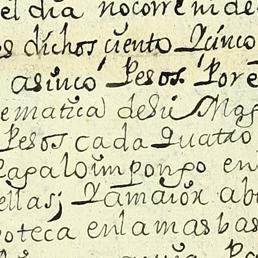 el dia no corre ni de
os dichos ciento Ycinco
a sinco Pesos. Por e
ematica) de su Mag
Pesos cada quatro
Paga lo impongo en
ellas; Yamaior ab
poteca en las mas bas